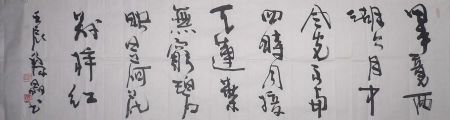 畢竟西
湖六月中
風光不與
四時同接
天蓮葉
無窮碧
映日荷花
別樣紅
壬辰